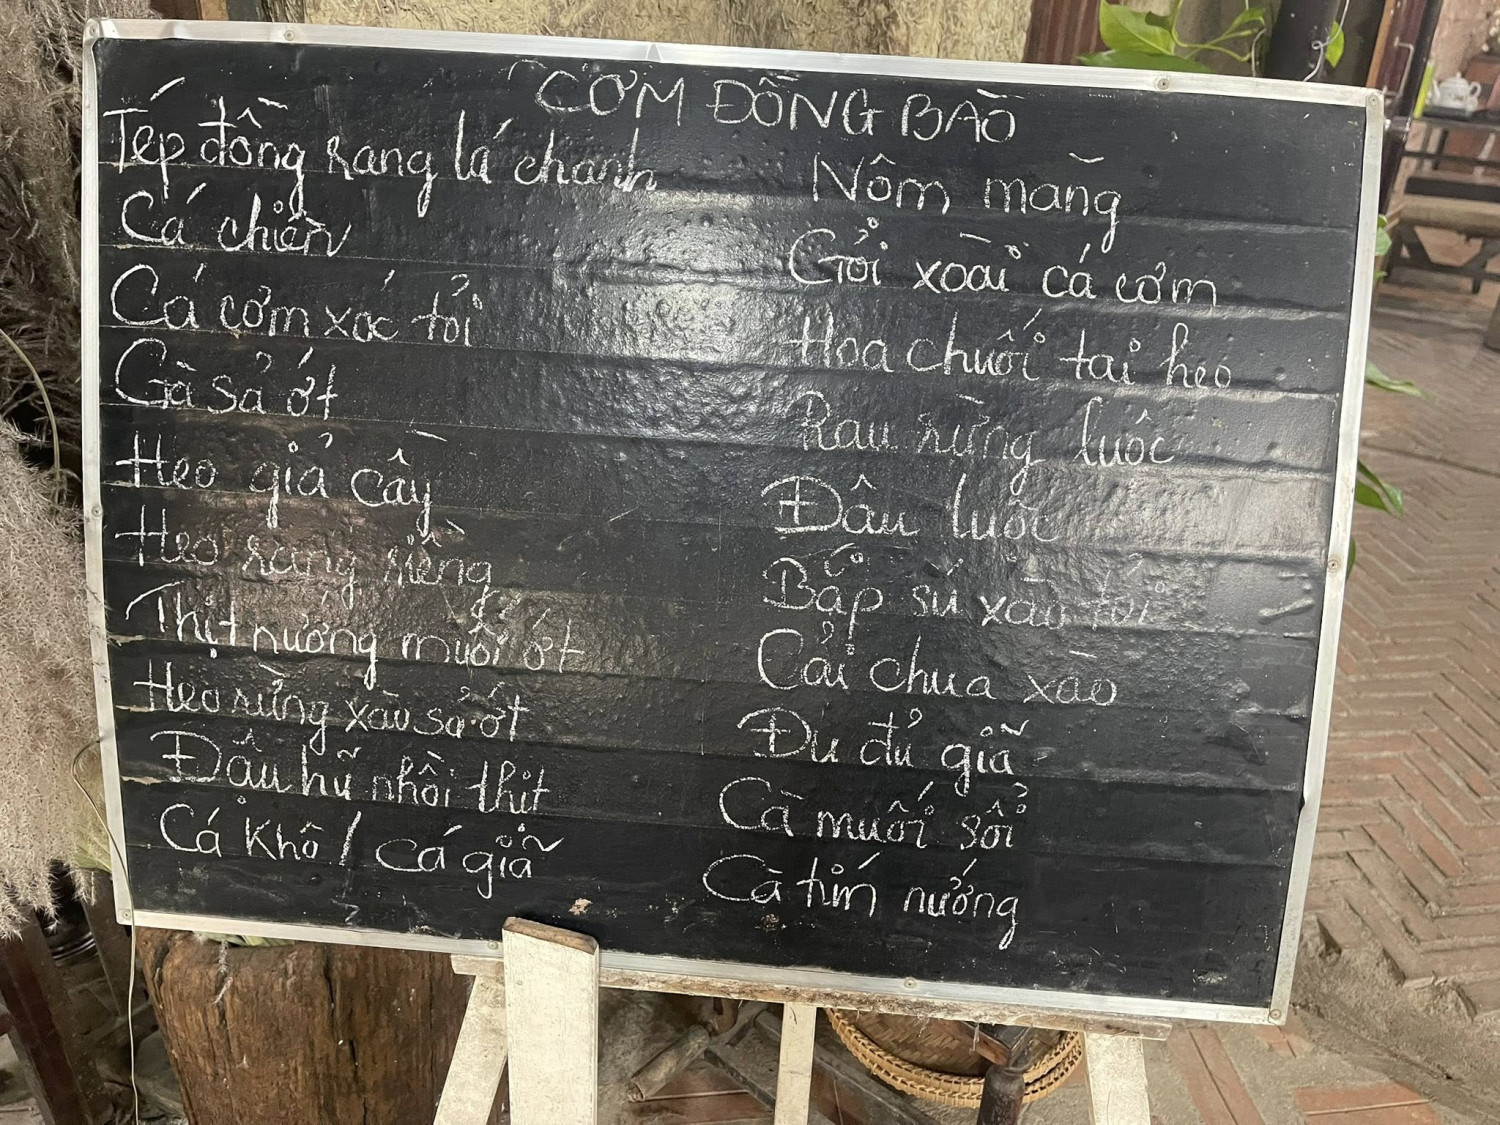 CƠM ĐỒNG BÀO
Tép đồng rang lá chanh
Cá chiên
Cá cơm xóc tỏi
Gà sả ớt
Heo giả cầy
Heo rang riềng
Thịt nướng muối ớt
Heo rừng xào sả ớt
Đậu hũ nhồi thịt
Cá Khô / Cá giã
Nôm măng
Gỏi xoài cá cơm
Hoa chuối tai heo
Rau rừng luộc
Đâu luôc
Bắp sú xào tỏi
Cải chua xào
Đu đủ giã
Cà muối sổi
Cà tím nướng